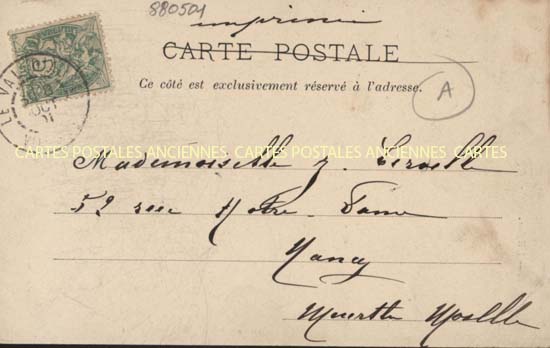 880501
imprimé
CARTE POSTALE
Ce côté est exclusivement réservé à l'adresse.
A
CARTES POSTALES ANCIENNES CARTES POSTALES ANCIENNES CARTES
Mademoiselle J.
52 rue Notre-Dame
Nancy
Meurthe Moselle